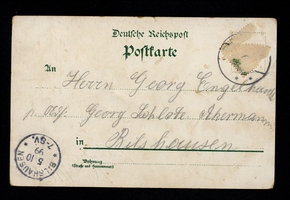 Deutsche Reichspost
Postkarte
An
Herrn Georg Engelhardt
p. Georg Schlote Ackermann
in Bilshausen
Wohnung
(Straße und Hausnummer)
BILSHAUSEN
5 10
99
7-8V.